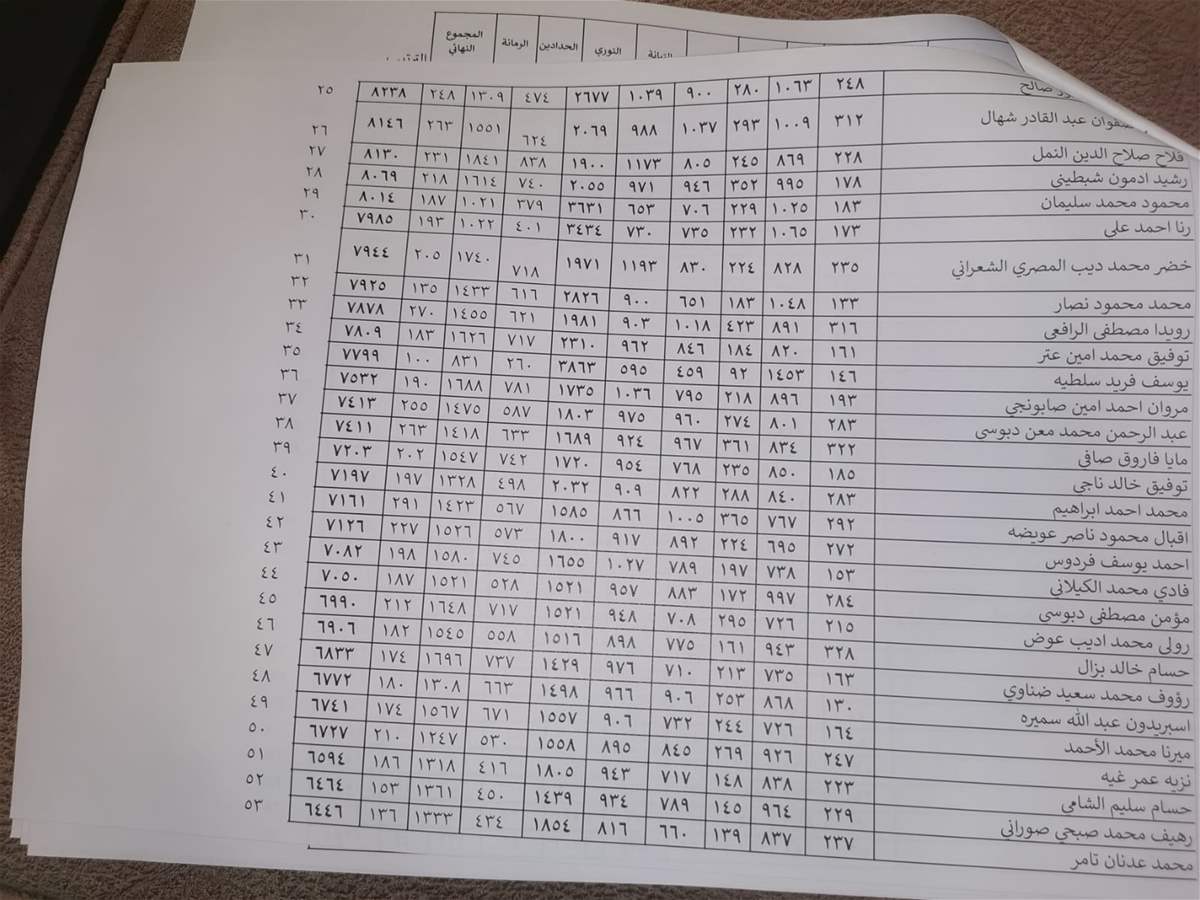 النوري الحدادين الرمانة المجموع النهائي
صالح ٢٤٨ ١٠٦٣ ٢٨٠ ٩٠٠ ١٠٣٩ ٢٦٧٧ ٤٧٤ ١٣٠٩ ٢٤٨ ٨٢٣٨ ٢٥
صفوان عبد القادر شهال ٣١٢ ١٠٠٩ ٢٩٣ ١٠٣٧ ٩٨٨ ٢٠٦٩ ٦٢٤ ١٥٥١ ٢٦٣ ٨١٤٦ ٢٦
فلاح صلاح الدين النمل ٢٢٨ ٨٦٩ ٢٤٥ ٨٠٥ ١١٧٣ ١٩٠٠ ٨٣٨ ١٨٤١ ٢٣١ ٨١٣٠ ٢٧
رشيد ادمون شبطيني ١٧٨ ٩٩٥ ٣٥٢ ٩٤٦ ٩٧١ ٢٠٥٥ ٧٤٠ ١٦١٤ ٢١٨ ٨٠٦٩ ٢٨
محمود محمد سليمان ١٨٣ ١٠٢٥ ٢٢٩ ٧٠٦ ٦٥٣ ٣٦٣١ ٣٧٩ ١٠٢١ ١٨٧ ٨٠١٤ ٢٩
رنا احمد علي ١٧٣ ١٠٦٥ ٢٣٢ ٧٣٥ ٧٣٠ ٣٤٣٤ ٤٠١ ١٠٢٢ ١٩٣ ٧٩٨٥ ٣٠
خضر محمد ديب المصري الشعراني ٢٣٥ ٨٢٨ ٢٢٤ ٨٣٠ ١١٩٣ ١٩٧١ ٧١٨ ١٧٤٠ ٢٠٥ ٧٩٤٤ ٣١
محمد محمود نصار ١٣٣ ١٠٤٨ ١٨٣ ٦٥١ ٩٠٠ ٢٨٢٦ ٦١٦ ١٤٣٣ ١٣٥ ٧٩٢٥ ٣٢
رويدا مصطفى الرافعي ٣١٦ ٨٩١ ٤٢٣ ١٠١٨ ٩٠٣ ١٩٨١ ٦٢١ ١٤٥٥ ٢٧٠ ٧٨٧٨ ٣٣
توفيق محمد امين عتر ١٦١ ٨٢٠ ١٨٤ ٨٤٦ ٩٦٢ ٢٣١٠ ٧١٧ ١٦٢٦ ١٨٣ ٧٨٠٩ ٣٤
يوسف فريد سلطيه ١٤٦ ١٤٥٣ ٩٢ ٤٥٩ ٥٩٥ ٣٨٦٣ ٢٦٠ ٨٣١ ١٠٠ ٧٧٩٩ ٣٥
مروان احمد امين صابونجي ١٩٣ ٨٩٦ ٢١٨ ٧٩٥ ١٠٣٦ ١٧٣٥ ٧٨١ ١٦٨٨ ١٩٠ ٧٥٣٢ ٣٦
عبد الرحمن محمد معن دبوسي ٢٨٣ ٨٠١ ٢٧٤ ٩٦٠ ٩٧٥ ١٨٠٣ ٥٨٧ ١٤٧٥ ٢٥٥ ٧٤١٣ ٣٧
مايا فاروق صافي ٣٢٢ ٨٣٤ ٣٦١ ٩٦٧ ٩٢٤ ١٦٨٩ ٦٣٣ ١٤١٨ ٢٦٣ ٧٤١١ ٣٨
توفيق خالد ناجي ١٨٥ ٨٥٠ ٢٣٥ ٧٦٨ ٩٥٤ ١٧٢٠ ٧٤٢ ١٥٤٧ ٢٠٢ ٧٢٠٣ ٣٩
محمد احمد ابراهيم ٢٨٣ ٨٤٠ ٢٨٨ ٨٢٢ ٩٠٩ ٢٠٣٢ ٤٩٨ ١٣٢٨ ١٩٧ ٧١٩٧ ٤٠
اقبال محمود ناصر عويضه ٢٩٢ ٧٦٧ ٣٦٥ ١٠٠٥ ٨٦٦ ١٥٨٥ ٥٦٧ ١٤٢٣ ٢٩١ ٧١٦١ ٤١
احمد يوسف فردوس ٢٧٢ ٦٩٥ ٢٢٤ ٨٩٢ ٩١٧ ١٨٠٠ ٥٧٣ ١٥٢٦ ٢٢٧ ٧١٢٦ ٤٢
فادي محمد الكيلاني ١٥٣ ٧٣٨ ١٩٧ ٧٨٩ ١٠٢٧ ١٦٥٥ ٧٤٥ ١٥٨٠ ١٩٨ ٧٠٨٢ ٤٣
مؤمن مصطفى دبوسي ٢٨٤ ٩٩٧ ١٧٢ ٨٨٣ ٩٥٧ ١٥٢١ ٥٢٨ ١٥٢١ ١٨٧ ٧٠٥٠ ٤٤
رولى محمد اديب عوض ٢١٥ ٧٢٦ ٢٩٥ ٧٠٨ ٩٤٨ ١٥٢١ ٧١٧ ١٦٤٨ ٢١٢ ٦٩٩٠ ٤٥
حسام خالد بزال ٣٢٨ ٩٤٣ ١٦١ ٧٧٥ ٨٩٨ ١٥١٦ ٥٥٨ ١٥٤٥ ١٨٢ ٦٩٠٦ ٤٦
رؤوف محمد سعيد ضناوي ١٦٣ ٧٣٥ ٢١٣ ٧١٠ ٩٧٦ ١٤٢٩ ٧٣٧ ١٦٩٦ ١٧٤ ٦٨٣٣ ٤٧
اسبريدون عبد الله سميره ١٣٠ ٨٦٨ ٢٥٣ ٩٠٦ ٩٦٦ ١٤٩٨ ٦٦٣ ١٣٠٨ ١٨٠ ٦٧٧٢ ٤٨
ميرنا محمد الأحمد ١٦٤ ٧٢٦ ٢٤٤ ٧٣٢ ٩٠٦ ١٥٥٧ ٦٧١ ١٥٦٧ ١٧٤ ٦٧٤١ ٤٩
نزيه عمر غيه ٢٤٧ ٩٢٦ ٢٦٩ ٨٤٥ ٨٩٥ ١٥٥٨ ٥٣٠ ١٢٤٧ ٢١٠ ٦٧٢٧ ٥٠
حسام سليم الشامي ٢٢٣ ٨٣٨ ١٤٨ ٧١٧ ٩٤٣ ١٨٠٥ ٤١٦ ١٣١٨ ١٨٦ ٦٥٩٤ ٥١
رهيف محمد صبحي صوراني ٢٢٩ ٩٦٤ ١٤٥ ٧٨٩ ٩٣٤ ١٤٣٩ ٤٥٠ ١٣٦١ ١٥٣ ٦٤٦٤ ٥٢
محمد عدنان تامر ٢٣٧ ٨٣٧ ١٣٩ ٦٦٠ ٨١٦ ١٨٥٤ ٤٣٤ ١٣٣٣ ١٣٦ ٦٤٤٦ ٥٣